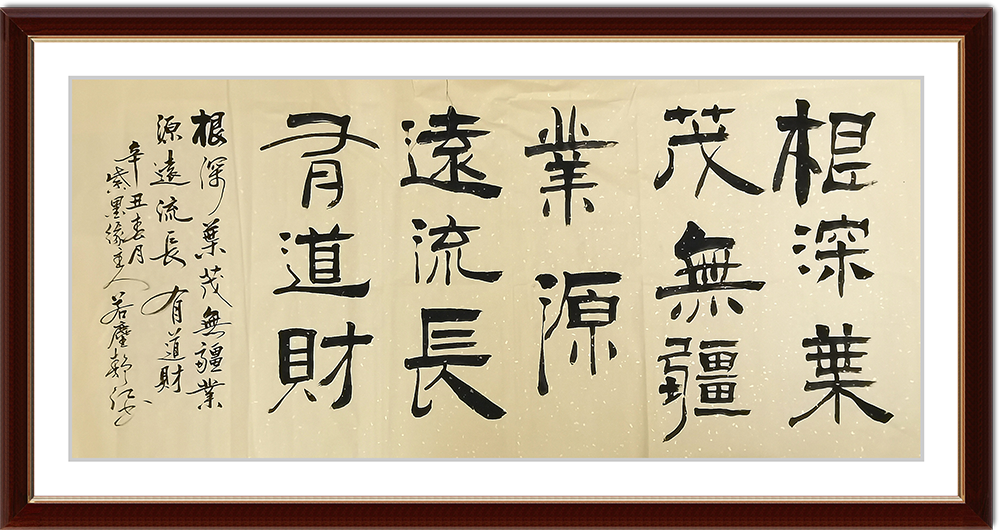 根深葉
茂無疆
業源
遠流長
有道財
根深葉茂無疆業
源遠流長有道財
辛丑春月
紫墨缘主人若塵